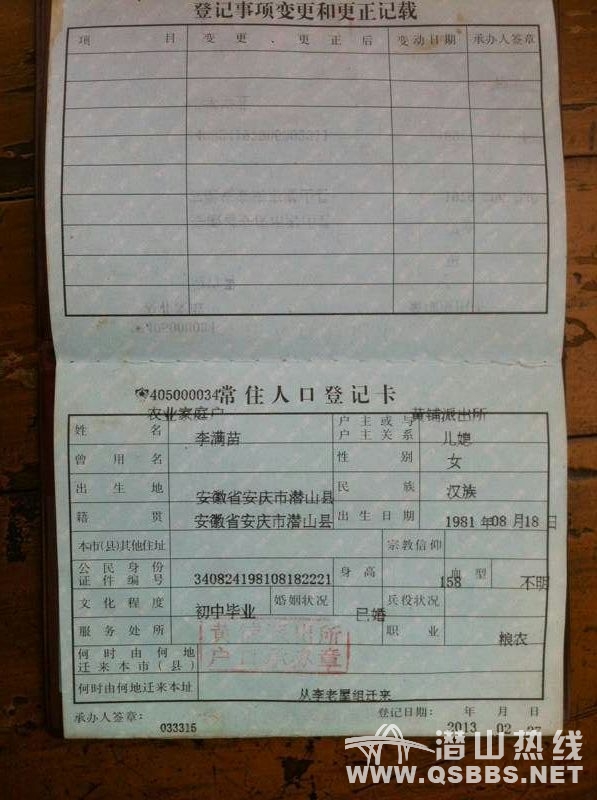 登记事项变更和更正记载
项 目 变更、更正后 变动日期 承办人签章
405000034 常住人口登记卡
农业家庭户 黄铺派出所
姓名 李满苗 户主或与户主关系 儿媳
曾用名 性别 女
出生地 安徽省安庆市潜山县 民族 汉族
籍贯 安徽省安庆市潜山县 出生日期 1981年08月18日
本市(县)其他住址 宗教信仰
公民身份证件编号 340824198108182221 身高 158 血型 不明
文化程度 初中毕业 婚姻状况 已婚 兵役状况
服务处所 职业 粮农
何时由何地迁来本市(县)
何时由何地迁来本址 从李老屋组迁来
承办人签章: 033315 登记日期: 年 月 日
2013 02
潜山热线
WWW.QSBBS.NET